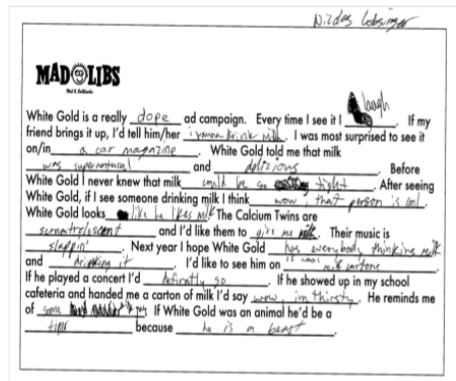 MAD LIBS
White Gold is a really dope ad campaign. Every time I see it I laugh. If my
friend brings it up, I'd tell him/her i wanna drink milk. I was most surprised to see it
on/in a car magazine. White Gold told me that milk
was supernatural and delicious. Before
White Gold I never knew that milk could be so tight. After seeing
White Gold, if I see someone drinking milk I think wow, that person is cool.
White Gold looks like he likes milk The Calcium Twins are
and I'd like them to give me milk. Their music is
slappin'. Next year I hope White Gold has everybody thinking milk
is cool
and drinking it. I'd like to see him on milk cartons.
If he played a concert I'd definitly go. If he showed up in my school
cafeteria and handed me a carton of milk I'd say wow, im thirsty. He reminds me
of some If White Gold was an animal he'd be a
tiger because he is a beast.